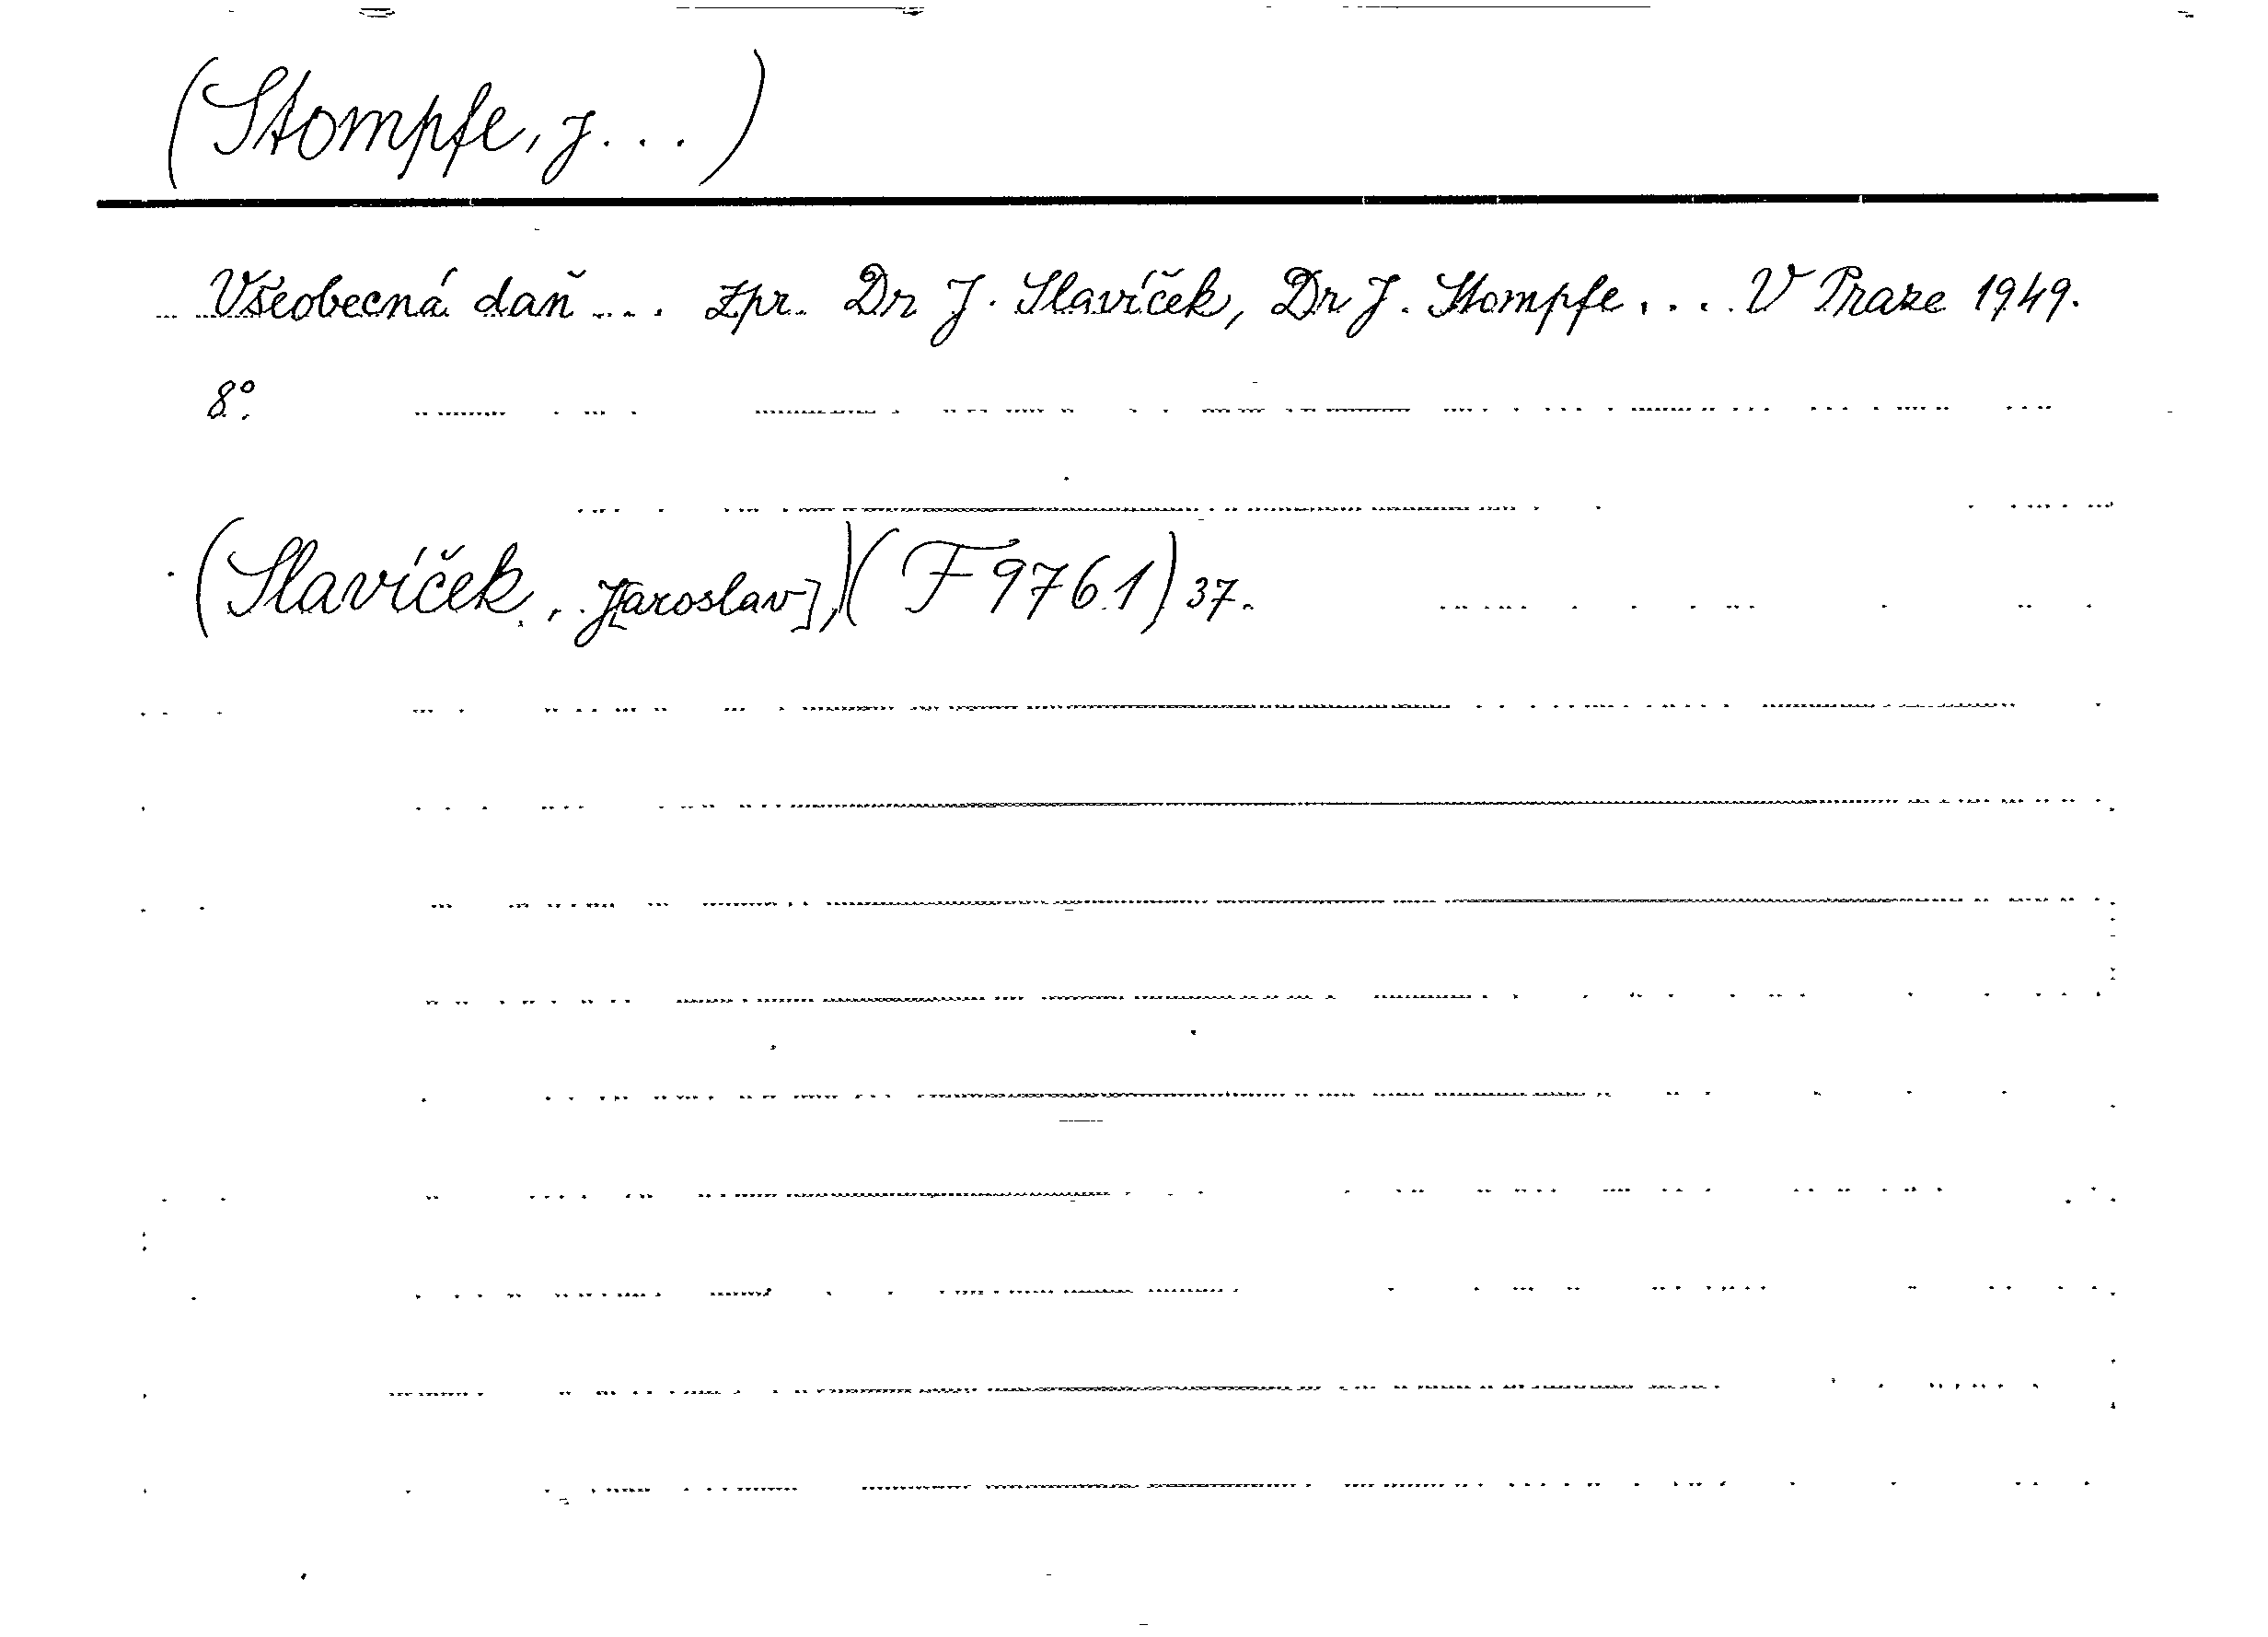 (Stompfe, J...)
Všeobecná daň... zpr. Dr J. Slavíček, Dr J. Stompfe... V Praze 1949.
8°.
(Slavíček, J[aroslav],)(F 9761) 37.